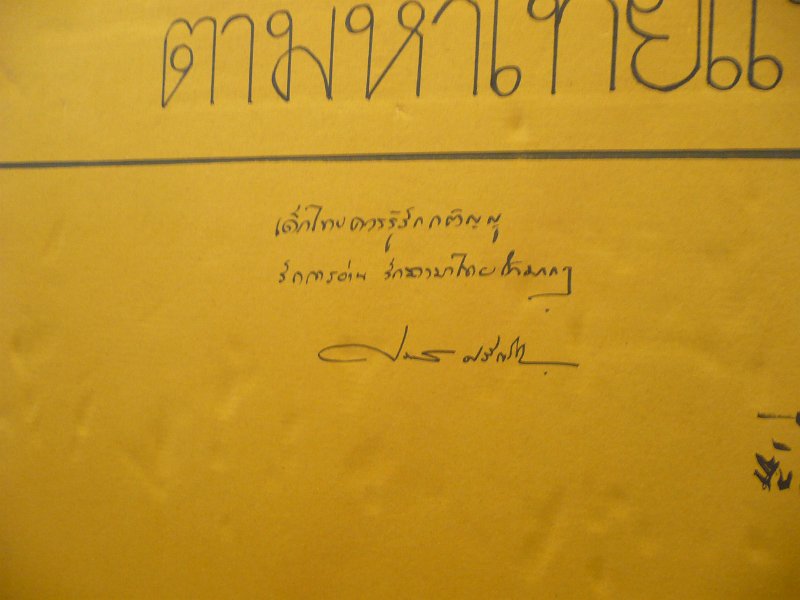 ตามหาไทยแ
เด็กไทยควรรู้จักกตัญญู
รักการอ่าน รักภาษาไทยให้มากๆ